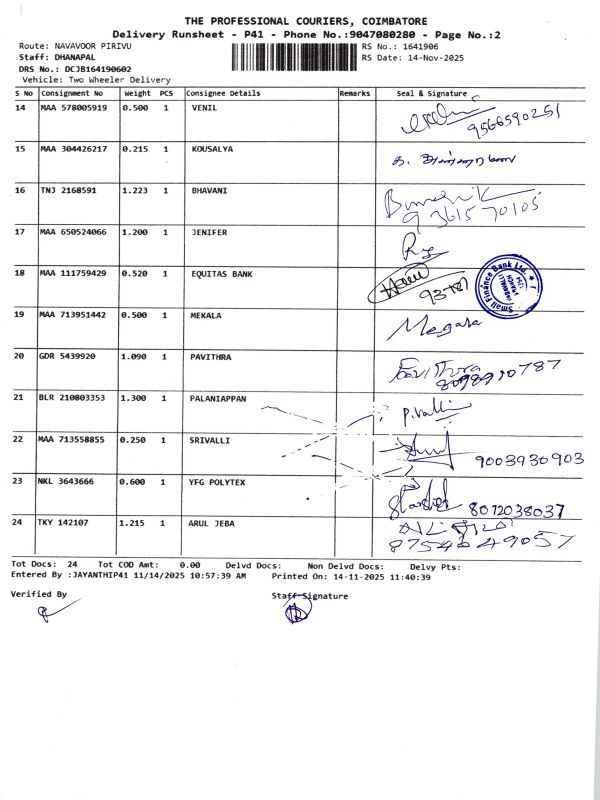 THE PROFESSIONAL COURIERS, COIMBATORE
Delivery Runsheet - P41 - Phone No.:9047080280 - Page No.:2
Route: NAVAVOOR PIRIVU
RS No.: 1641906
Staff: DHANAPAL
RS Date: 14-Nov-2025
DRS No.: DCJB164190602
Vehicle: Two Wheeler Delivery
S No Consignment No Weight PCS Consignee Details Remarks Seal & Signature
14 MAA 578005919 0.500 1 VENIL
9566590251
15 MAA 304426217 0.215 1 KOUSALYA
16 TNJ 2168591 1.223 1 BHAVANI
9361570105
17 MAA 650524066 1.200 1 JENIFER
18 MAA 111759429 0.520 1 EQUITAS BANK
Small Finance Bank Ltd.
19 MAA 713951442 0.500 1 MEKALA
Megala
20 GDR 5439920 1.090 1 PAVITHRA
Pavithra
8098910787
21 BLR 210803353 1.300 1 PALANIAPPAN
P.Valli
22 MAA 713558855 0.250 1 SRIVALLI
9003930903
23 NKL 3643666 0.600 1 YFG POLYTEX
8072038037
24 TKY 142107 1.215 1 ARUL JEBA
8754649057
Tot Docs: 24 Tot COD Amt: 0.00 Delvd Docs: Non Delvd Docs: Delvy Pts:
Entered By :JAYANTHIP41 11/14/2025 10:57:39 AM Printed On: 14-11-2025 11:40:39
Verified By Staff Signature